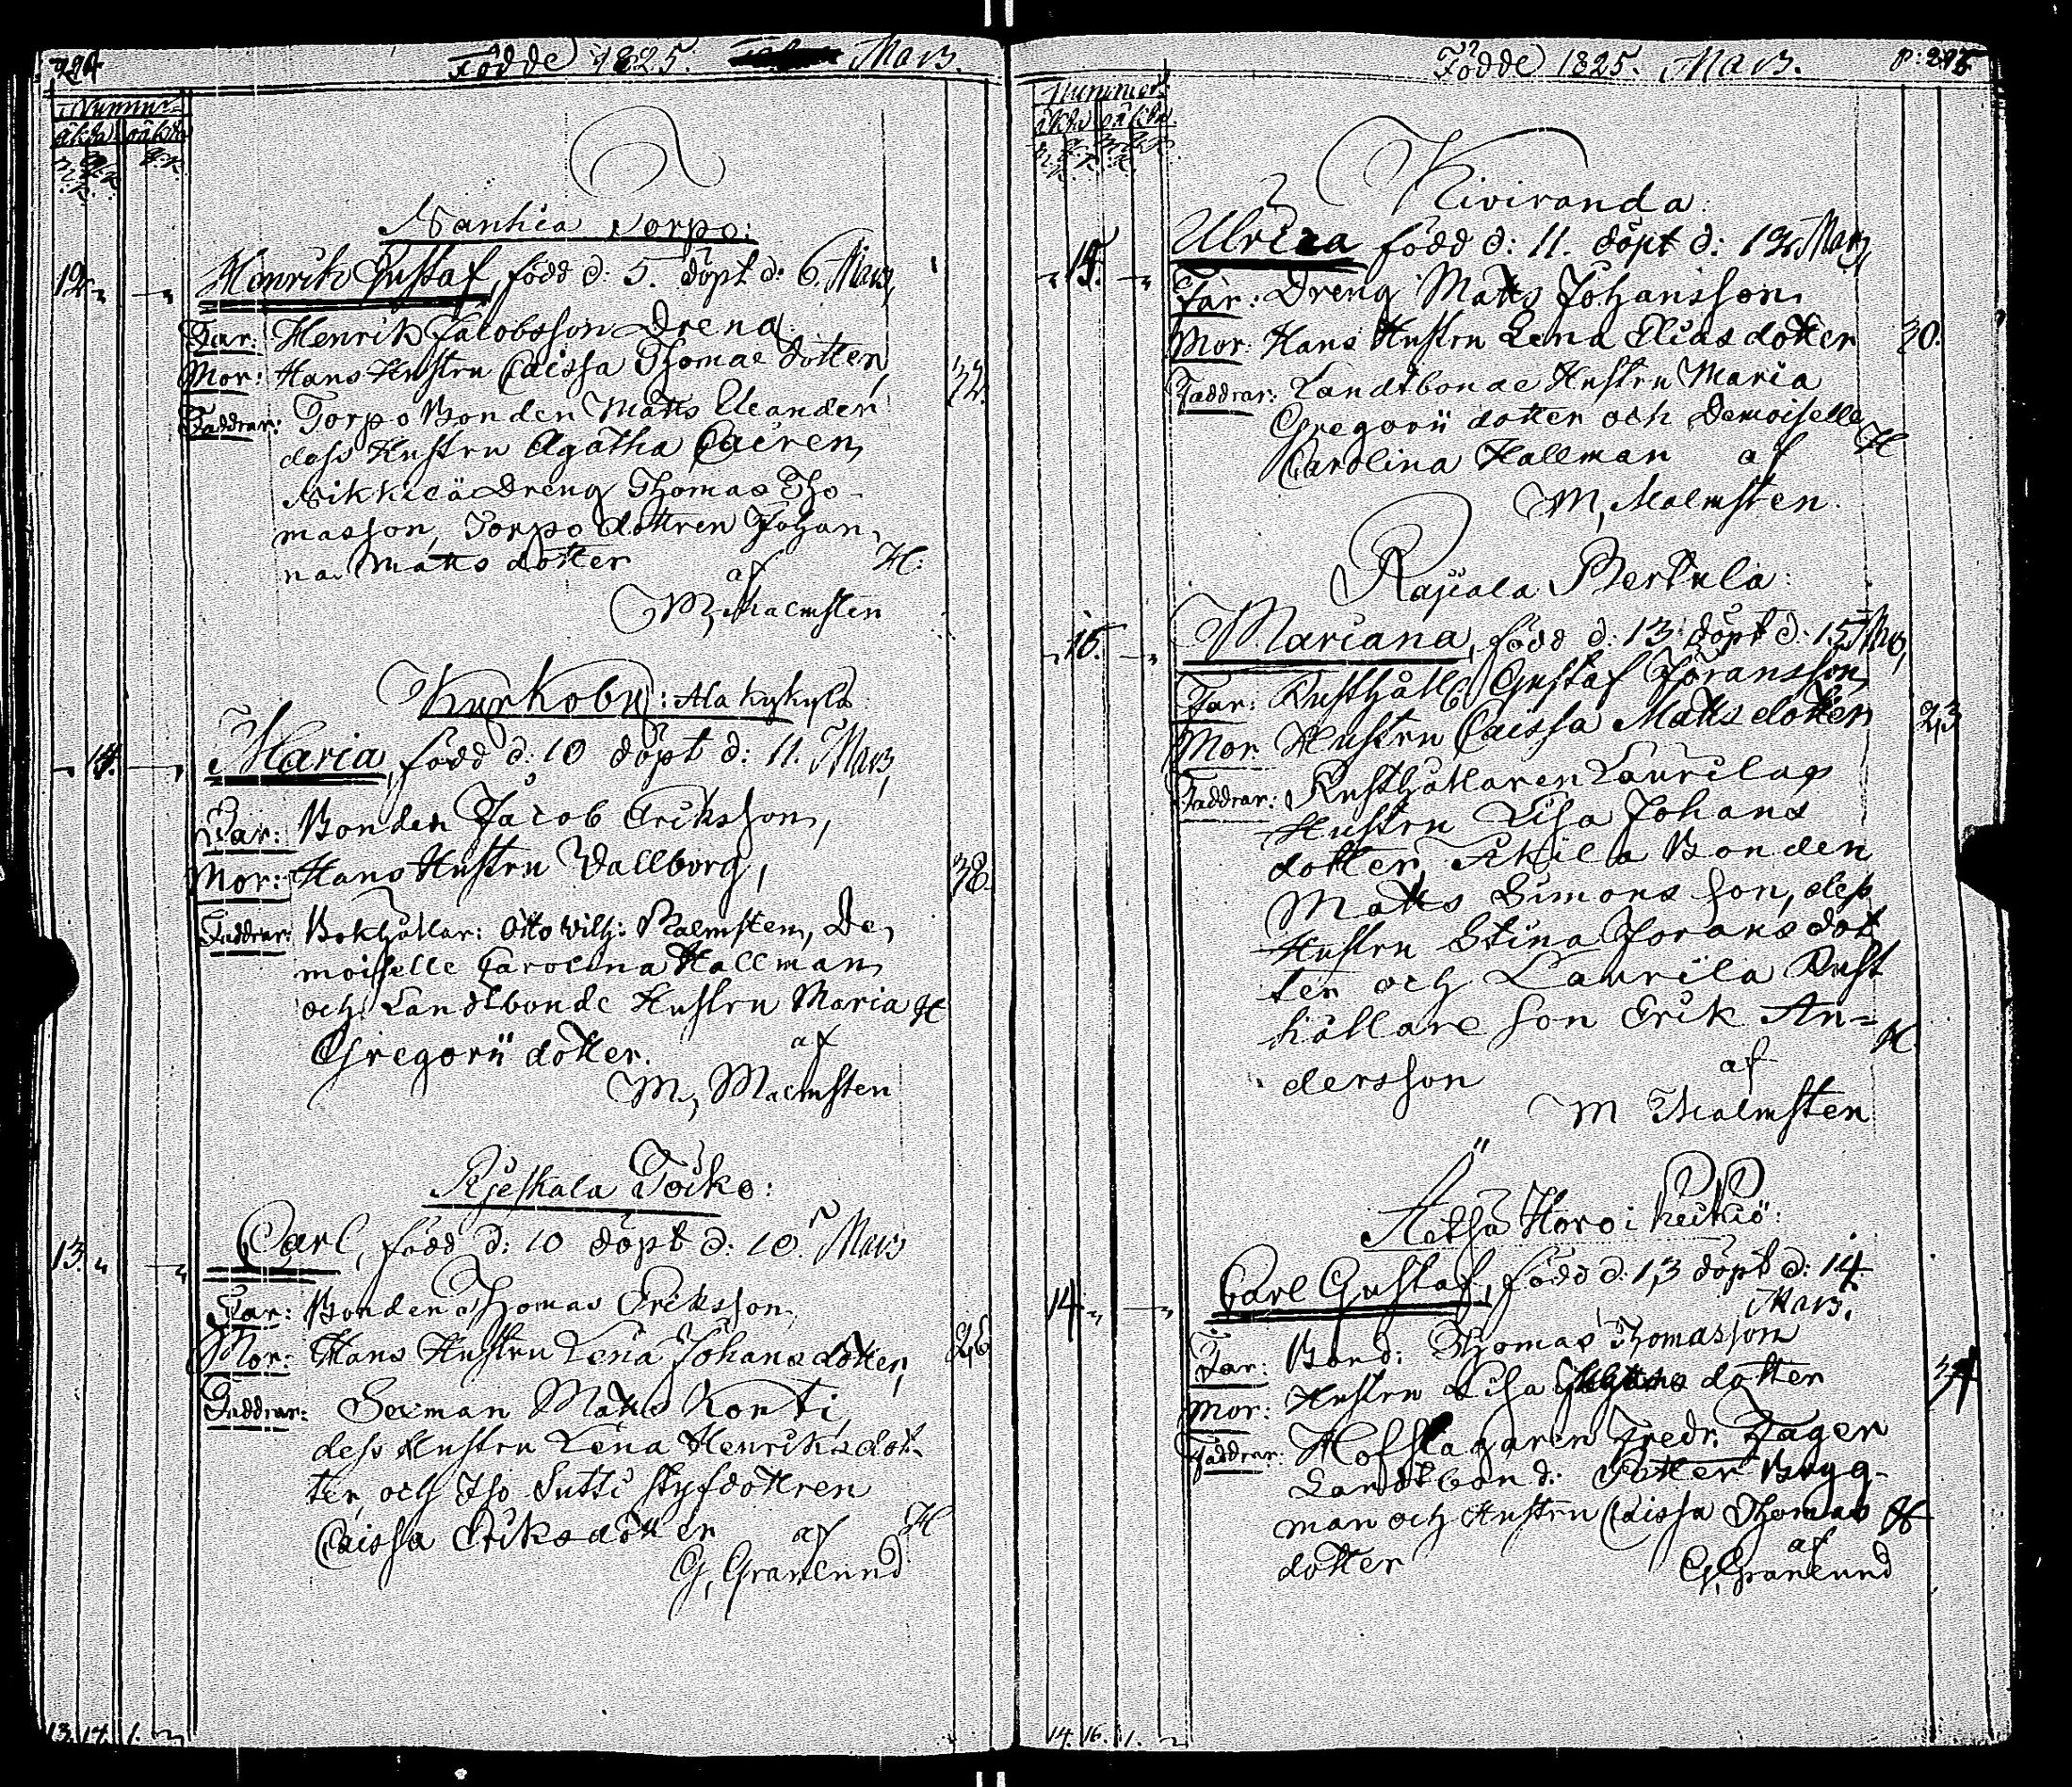 224
Födde 1825. Mars.
Nummer
äkta oäkta
Nankia Torpo:
12. Henrik Gustaf, född d: 5. döpt d: 6. Mars,
Far: Henrik Jacobsson Dreng
Mor: Hans Hustru Caissa Thomae dotter, 32.
Faddrar: Torpo Bonden Matts Eleander
dess Hustru Agatha Cairen,
Nikkilä Dreng Thomas Tho-
masson, Torpo dottren Johan,
na Matts dotter af H:
M, Malmsten
Kyrkoby: Ala kykylä
14. Maria, född d: 10 döpt d: 11. Mars,
Far: Bonden Jacob Eriksson,
Mor: Hans Hustru Vallborg, 38.
Faddrar: Bokhållar: Otto Wilh: Malmsten, De,
moiselle Carolina Hallman
och Landtbonde Hustru Maria H
Gregorii dotter. af
M, Malmsten
Kjeskala Toiko:
13. Carl, född d: 10 döpt d: 10. Mars
Far: Bonden Thomas Eriksson,
Mor: Hans Hustru Lena Johans dotter, 26
Faddrar: Sexman Matts Konti,
dess Hustru Lena Henriks dot-
ter, och Iso Sutti styfdottren
Caissa Eriksdotter af H
G, Granlund
13. 14. 1.
Födde 1825. Mars. p: 225
Nummer
äkta oäkta
Kiviranda:
15. Ulrica född d: 11. döpt d: 13 Mars,
Far: Dreng Matts Johansson
Mor: Hans Hustru Lena Elias dotter 30.
Faddrar: Landtbonde Hustru Maria
Gregorii dotter och Demoiselle
Carolina Hallman af H
M, Malmsten.
Rajala Bertula:
16. Mariana, född d: 13 döpt d: 15 Mars,
Far: Rusthåll: Gustaf Jöransson,
Mor. Hustru Caissa Matts dotter 23
Faddrar: Rusthållaren Laurilas
Hustru Lisa Johans
dotter, Bonden
Matts Simons son, dess
Hustru Stina Jorans dot
ter och Laurila Rust
hållare son Erik An-
dersson af H
M Malmsten
Äetsä Horo i Keikiö:
14. Carl Gustaf, född d: 13 döpt d: 14
Mars.
Far: Bond: Thomas Thomasson
Mor: Hustru Lisa dotter 34
Faddrar: Hofslagaren Fredr. Zager
Landtbond: Petter Brygg-
man och Hustru Caissa Thomas H
dotter af
G, Granlund
14. 16. 1.